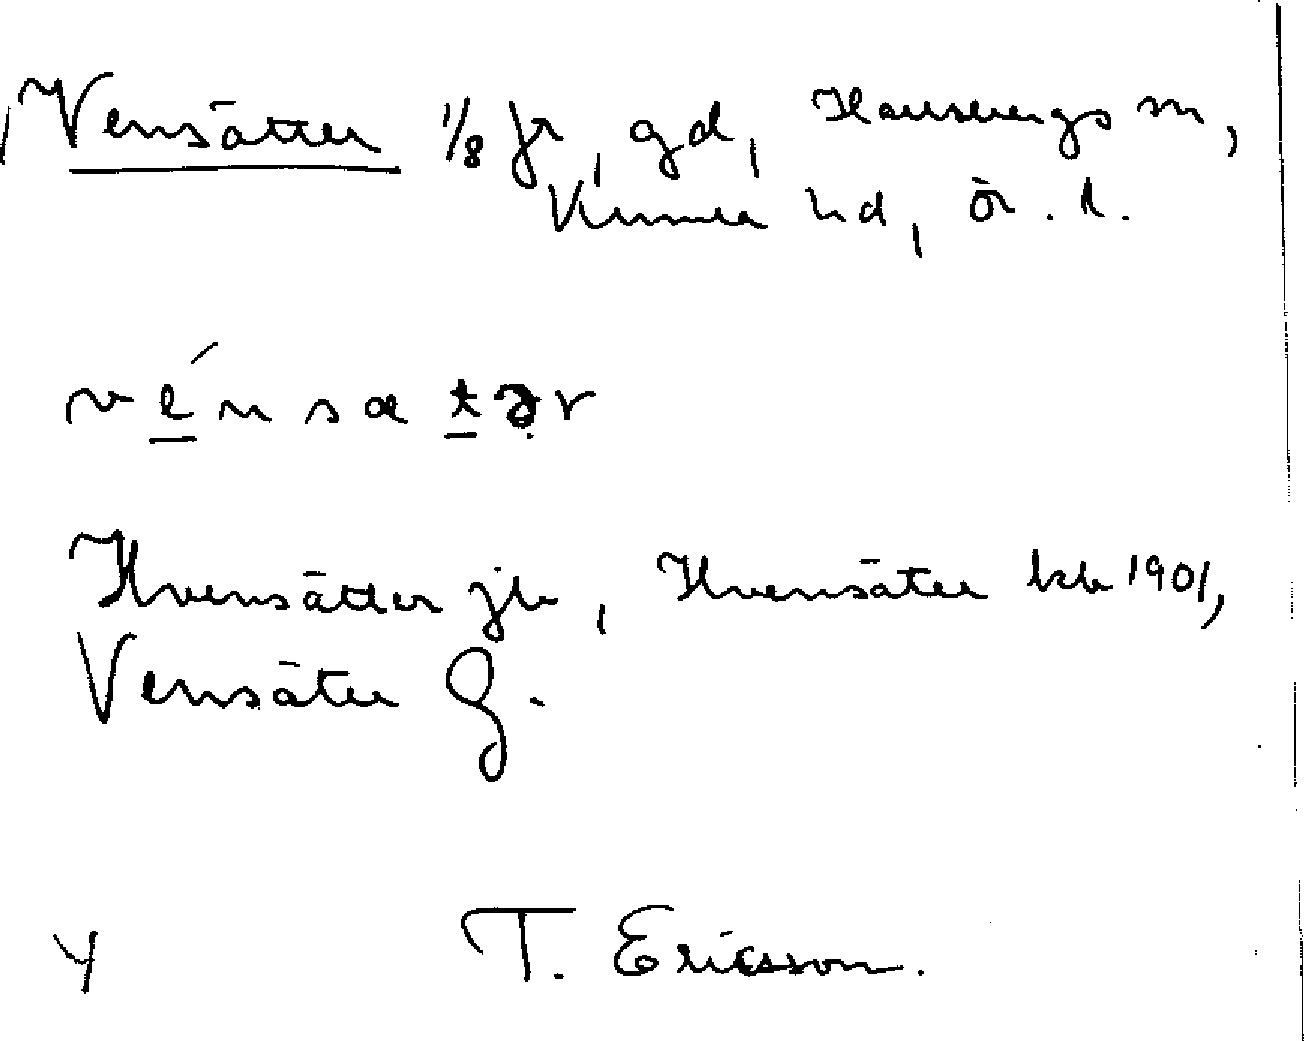 Vensätter 1/8 fr, gd, Hausbergs sn,
Vinnea hd, ör. l.
vénsætər
Hvensätter jb, Hvensäter kb 1901,
Vensäter G.
T. Ericsson.